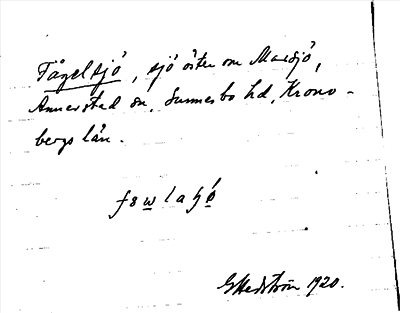 Fågelsjö, sjö öster om Marsjö,
Annerstad sn, Sunnerbo hd, Krono-
bergs län.
GHedström 1920.